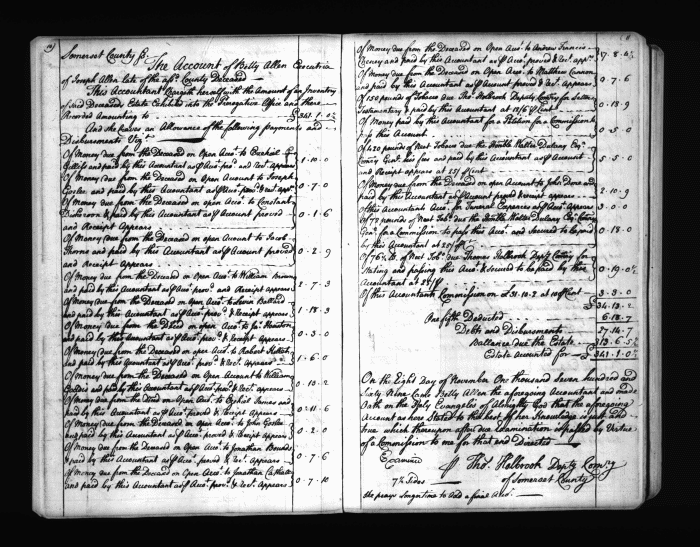 Somerset County Ss
The Account of Betty Allen Executrix
of Joseph Allen late of the afsd. County Deceased
This Accountant Chargeth herself with the Amount of an Inventory
of said Deceaseds Estate Exhibited into the Prerogative Office and there
Recorded Amounting to £341.1.0½
And she Craves an Allowance of the following payments and
Disbursements Viz.
Of Money due from the Deceased on Open Acct. to Ezekiel
and paid by this Accountant as Acct. prov'd and Rect. appears 1.10.0
Of Money due from the Deceased on Open Account to Joseph
and paid by this Accountant as Acct. proved & Rect. appr. 0.7.0
Of Money due from the Deceased on open Account to Constant
& paid by this Accountant as Acct. proved
and Receipt Appears 0.1.6
Of Money due from the Deceased on open Account to Jacob
and paid by this Accountant as Acct. proved
and Receipt Appears 0.2.9
Of Money due from the Deceased on Open Acct. to William
and paid by this Accountant as Acct. prov'd and Receipt appears 2.7.3
Of Money due from the Deceased on Open Acct. to Levin Ballard
and paid by this Accountant as Acct. prov'd & Receipt appears 1.18.3
Of Money due from the Deced on open Acct. to
and paid by this Accountant as Acct. prov'd & Receipt Appears 0.3.0
Of Money due from the Deceased on open Acct. to Robert
and paid by this Accountant as Acct. prov'd & Rect. Appears 1.6.0
Of Money due from the Deceased on Open Account to William
and paid by this Accountant as Acct. prov'd & Rect. appears 0.13.2
Of Money due from the Deced on Open Acct. to Ezekiel James and
paid by this Accountant as Acct. proved & Receipt Appears 0.11.6
Of Money due from the Deceased on Open Acct. to John
and paid by this Accountant as Acct. proved & Receipt appears 0.2.0
Of Money due from the Deceased on Open Acct. to Jonathan Bounds
& paid by this Accountant as Acct. proved & Rect. Appears 0.7.6
Of Money due from the Deceased on Open Acct. to Jonathan
and paid by this Accountant as Acct. prov'd & Rect. Appears 0.7.10
11
Of Money due from the Deceased on Open Acct. to Andrew Francis
Cheney and paid by this Accountant as Acct. proved & Rect. appr. 7.8.6½
Of Money due from the Deceased on Open Acct. to Matthew Cannon
and paid by this Accountant as Acct. proved & Rect. Appears 0.7.6
Of 150 pounds of Tobacco due Thos. Holbrook Deputy Comsry for Letters
Testamentary & paid by this Accountant at 12/6 Cent 0.18.9
Of Money paid by this Accountant for a Petition for a Commission to
pass this Account 0.5.0
Of 420 pounds of Neet Tobacco due the Honble Walter Dulany Esqr.
Comsry Genl. his fees and paid by this Accountant as Account
and Receipt appears at 25/ Cent 5.5.0
Of Money due from the Deceased on open Account to John Done and
paid by this Accountant as Account proved & receipt appears 2.10.9
Of this Accountants Acct. for Funeral Expences as Acct. Appears 3.0.0
Of 72 pounds of Neet Tobo. due the Honble Walter Dulany Esqr. Comsry
Genl. for a Commission to pass this Acct. and Secured to be paid
by this Accountant at 25/ 0.18.0
Of 76½ lb. of Neet Tobo. due Thomas Holbrook Depty Comsry for
Stating and passing this Acct. & Secured to be paid by this
Accountant at 25/ 0.19.0½
Of this Accountants Commission on £31.10.2 at 10 Cent 3.3.0
£34.13.2
One fifth Deducted 6.18.7
Debts and Disbursements 27.14.7
Ballance due the Estate 313.6.5½
Estate Accounted for £341.1.0½
On the Eight Day of November One thousand Seven hundred and
Sixty Nine Came Betty Allen the aforegoing Accountant and made
Oath on the Holy Evangeles of Almighty God that the aforegoing
Account as here Stated to the best of her Knowledge is Just and
true which thereupon after due Examination is passed by Virtue
of a Commission to me for that end Directed
Examined
Thos. Holbrook Depty Comsry
7½ Sides of Somerset County
she prays Longer time to Add a final Acct.